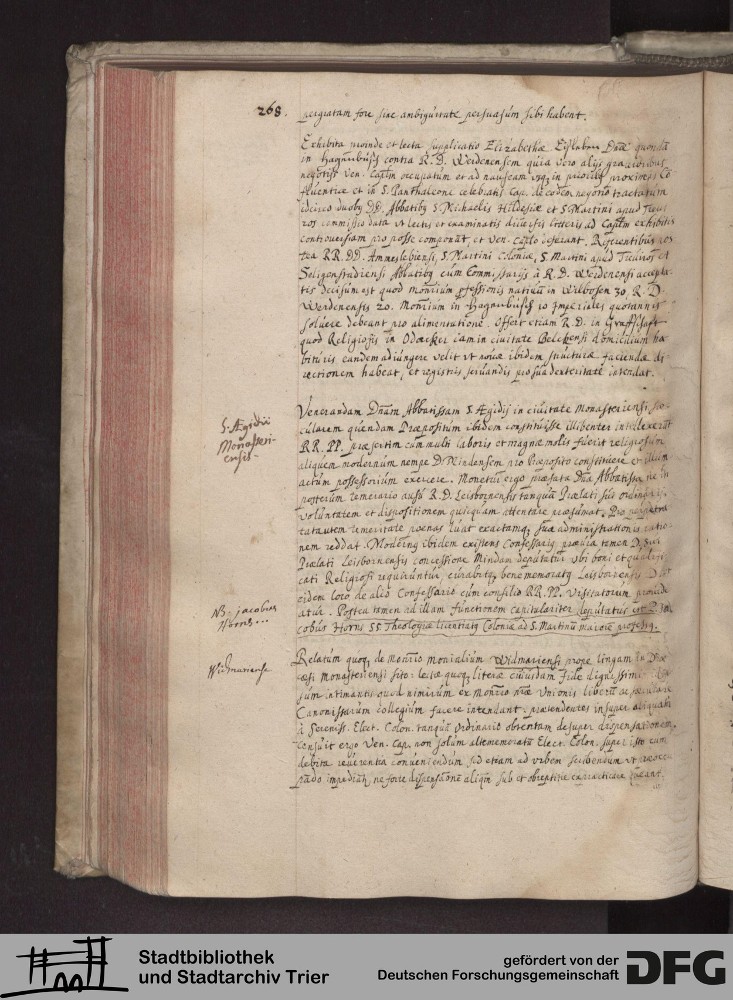 268. pergratam fore sine ambiguitate persuasum sibi habent.
Exhibita proinde et lecta supplicatio Elizabethæ Dnæ quondã
in Hagenbusch contra R. D. Werdenensem quia vero alijs gravioribus
negotijs Ven. Captm occupatum et ad nauseam usq, in prioribus proximis Cõ
fluentiæ et in S. Panthaleone celebratis Cap. de eodem negotio tractatum
idcirco duobq DD. Abbatibq S Michaelis Hildesiæ et S Martini apud Treui
ros commissio data vt lectis et examinatis diuersis litteris ad Captm exhibitis
controversiam pro posse componãt, et Ven. Capto deferant. Referentibus pos
tea RR. DD. Ammeslebiensi, S. Martini Coloniæ, S. Martini apud Treuiros et
Seligenstadiensi Abbatibq cum Commissarijs à R. D. Werdenensi accepta
tis decisum est quod Monrium professionis natiuũ in Wilbosen 30. R. D
Werdenensis 20. Monrium in Hagenbusch 10 Imperiales quotannis
soluere debeant pro alimentatione. Offert etiam R. D. in Graffschaft
quod Religiosis in Odacker iam in ciuitate Belekensi domicilium ha
bituris eundem adiungere velit vt nouæ ibidem structuræ faciendæ di
rectionem habeat, et registris seruandis pro sua dexteritate intendat.
S. Ægidij
Monasteri-
ensis.
Venerandam Dnam Abbatissam S Ægidij in ciuitate Monasteriensi sæ-
cularem quendam Præpositum ibidem constituisse illibenter intellexerũt
RR. PP. præsertim cum multi laboris et magnæ molis fuerit religiosum
aliquem modernum nempe D. Mindensem pro Præposito constituere et illum
actum possessorium exercere. Monetur ergo præfata Dna Abbatissa ne in
posterum temerario ausu R. D. Leisbornensis tanquã Prælati sui ordinarij
voluntatem et dispositionem quicquam attentare præsumat. Pro perpetra
ta autem temeritate pœnas luat exactamq, suæ administrationis ratio-
nem reddat. Modernq ibidem existens Confessariq, præuia tamen D. sui
Prælati Leisbornensis concessione Mindam deputatur vbi boni et qualifi
cati Religiosi requiruntur, curabitq, bene memoratq Leisbornensis D. vt
eidem loco de alio Confessario cum consilio RR. PP. Visitatorum prouide
atur. Postea tamen ad illam functionem capitulariter deputatus est D. Ja
cobus Horns SS Theologiæ licentiatq Coloniæ ad S. Martinũ maiorẽ professq.
NB. Jacobus
Horns...
Widmariense
Relatum quoq, de Monrio Monialium Widmariensi prope lingam in Diœ
cæsi Monasteriensi sito: lectæ quoq, literæ cuiusdam fide dignissimi
intimantis quod nimirum ex Monrio nræ Unionis liberũ ac sæculare
Canonissarum collegium facere intendant: prætendentes insuper aliquam
à Sereniss. Elect. Colon. tanquã Ordinario obtentam desuper dispensationem,
censuit ergo Ven. Cap. non solum altememoratũ Elect. Colon. super isto cum
debita reuerentia conueniendum sed etiam ad vrbem scribendum vt præoccu
pãdo impediatr, ne forte dispensãonẽ aliqm sub et obreptitie expracticare queant.
Stadtbibliothek
und Stadtarchiv Trier
gefördert von der
Deutschen Forschungsgemeinschaft
DFG